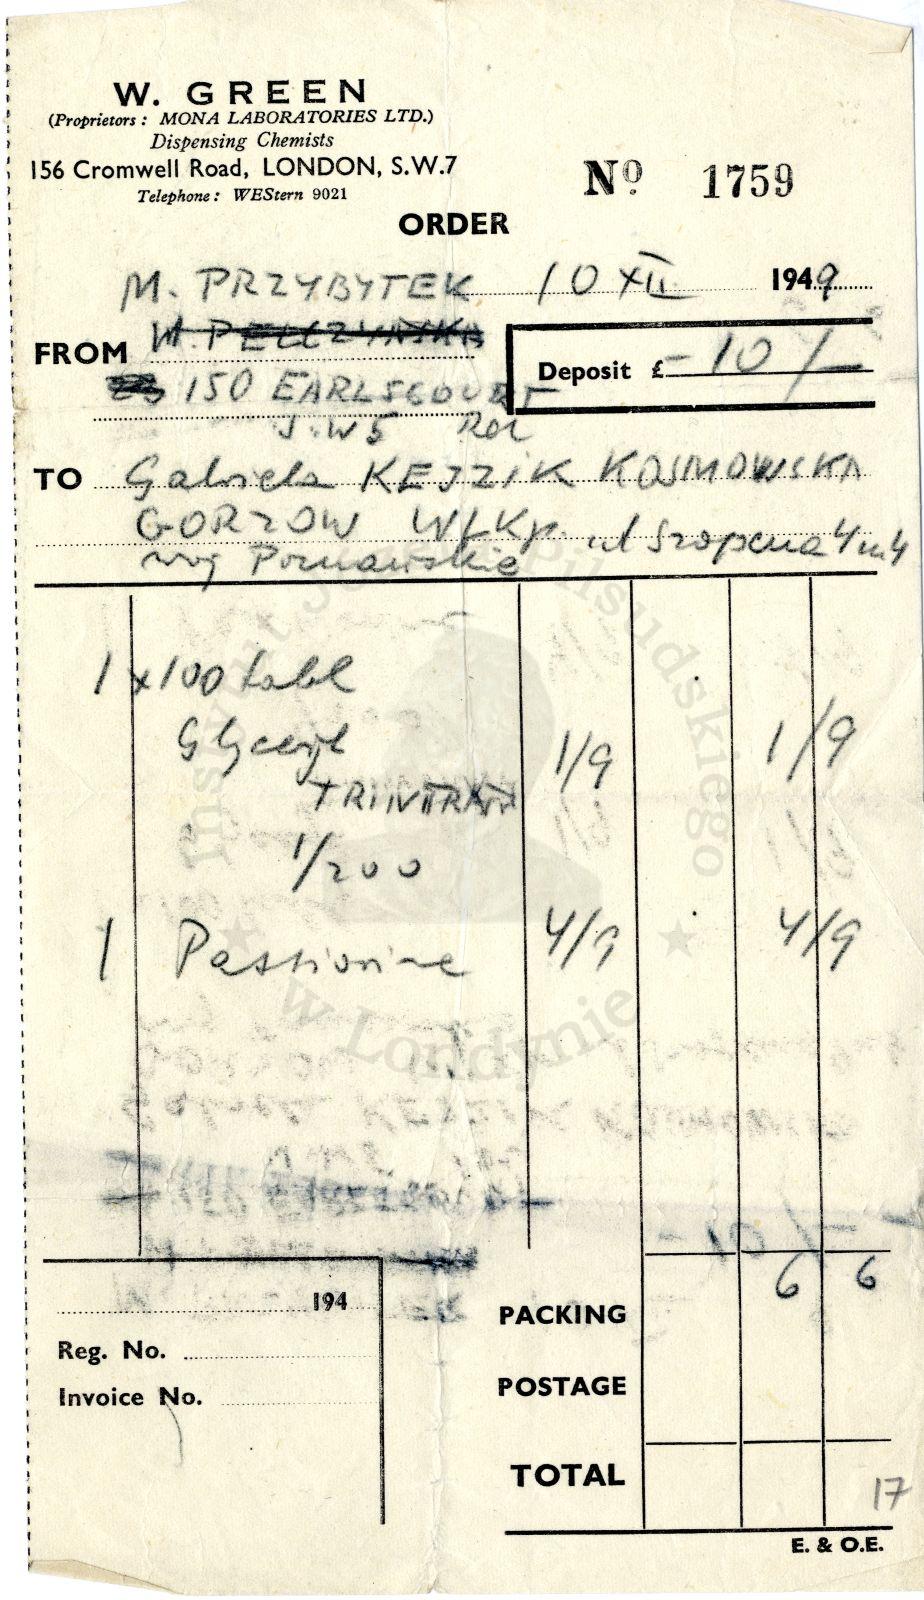 W. GREEN
(Proprietors: MONA LABORATORIES LTD.)
Dispensing Chemists
156 Cromwell Road, LONDON, S.W.7
Telephone: WEStern 9021
Nº 1759
ORDER
M. PRZYBYTEK 10 XII 1949
FROM W. PEŁCZYŃSKA
Deposit £ -10/-
150 EARLSCOURT
S.W5 Rd
TO Gabriela KEJZIK KOSMOWSKA
GORZOW WLKp. ul Szopena 4 m 4
woj Poznawskie
1 x 100 tabl
Glyceryl 1/9 1/9
TRINITRATE
1/200
1 Passiorine 4/9 4/9
6 6
194
PACKING
Reg. No.
POSTAGE
Invoice No.
TOTAL
17
E. & O.E.
Instytut Józefa Piłsudskiego
w Londynie